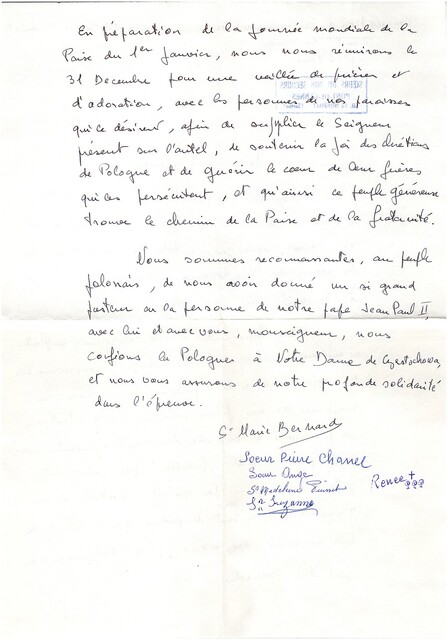 En préparation de la Journée mondiale de la
Paise du 1er Janvier, nous nous réunirons le
31 Decembre pour une veillée de prières et
d'adoration, avec les personnes de nos paroisses
qui le désirent, afin de supplier le Seigneur
présent sur l'autel, de soutenir la foi des chrétiens
de Pologne et de guérir le cœur de leur frères
qui les persécutent, et qu'ainsi ce peuple généreux
trouve le chemin de la Paise et de la fraternité.
Nous sommes reconnaissantes, au peuple
polonais, de nous avoir donné un si grand
pasteur en la personne de notre pape Jean Paul II,
avec lui et avec vous, monseigneur, nous
confions la Pologne à Notre Dame de Czestochowa,
et nous vous assurons de notre profonde solidarité
dans l'épreuve.
Sr Marie Bernard
Soeur Pierre Chanel
Soeur Ange
Sr Madeleine
Renée
Sr Suzanne